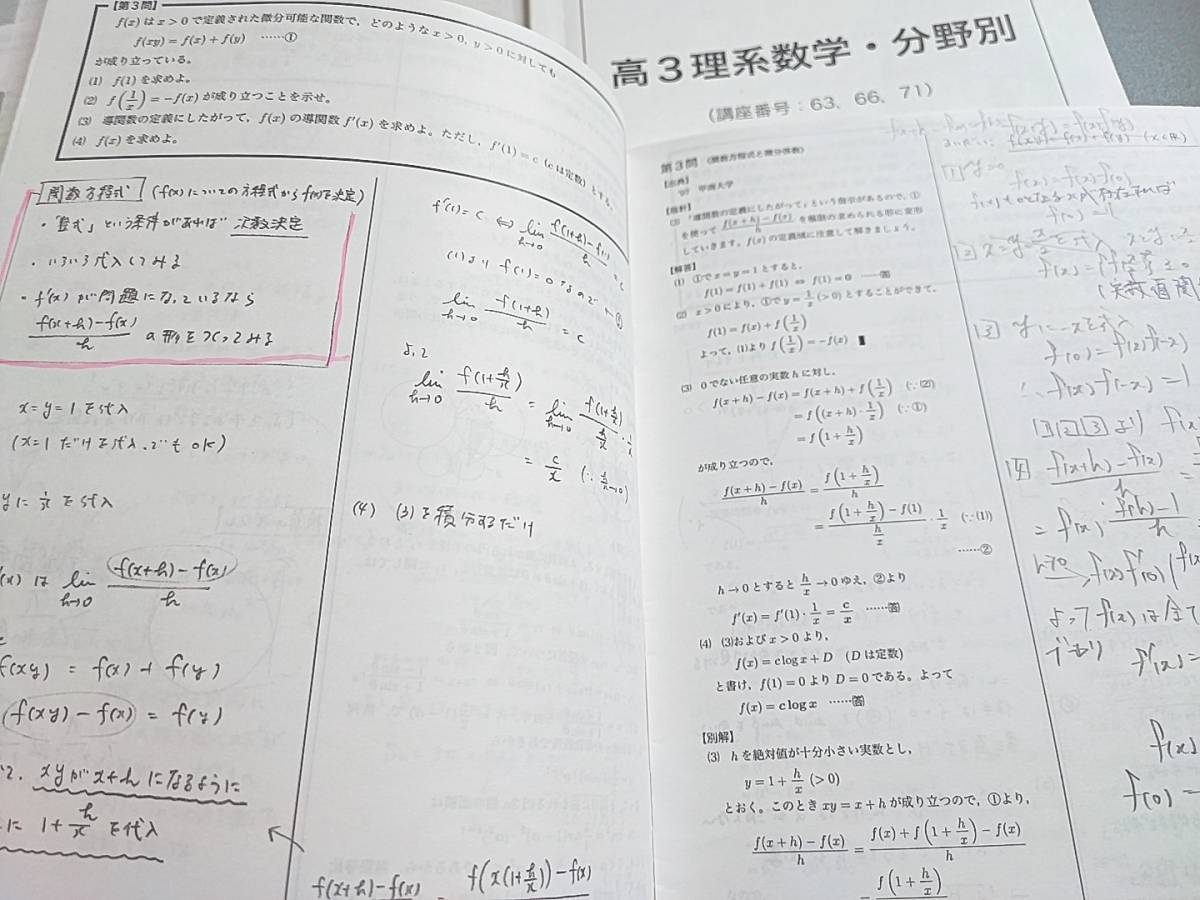 【第3問】
f(x) は x>0 で定義された微分可能な関数で，どのような x>0, y>0 に対しても
f(xy) = f(x) + f(y) ……①
が成り立っている。
(1) f(1) を求めよ。
(2) f(1/x) = −f(x) が成り立つことを示せ。
(3) 導関数の定義にしたがって，f(x) の導関数 f′(x) を求めよ。ただし，f′(1) = c (c は定数) とする。
(4) f(x) を求めよ。
関数方程式 (f(x)についての方程式からf(x)を決定)
・「整式」という条件があれば 次数決定
・いろいろ代入してみる
・f′(x) が問題になっているなら
f(x+h)−f(x)/h の形をつくってみる
x=y=1 を代入
(x=1 だけを代入でも OK)
yに 1/x を代入
lim h→0 f(x+h)−f(x)/h
f(xy) = f(x) + f(y)
f(xy)−f(x) = f(y)
xyがx+hになるように
に 1+h/x を代入
f′(1)=c ⇔ lim h→0 f(1+h)−f(1)/h = c
(1)より f(1)=0 なので
lim h→0 f(1+h)/h = c
よって
lim h→0 f(1+h/x)/h = lim h→0 f(1+h/x)/(h/x)・1/x
= c/x (∵ h/x→0)
(4) (3)を積分するだけ
f(x+h)−f(x) = f(x(1+h/x))−f(x)
高３理系数学・分野別
(講座番号：63、66、71)
第3問 (関数方程式と微分係数)
【出典】
'97 甲南大学
【指針】
(3) 「導関数の定義にしたがって」という指示があるので，①
を使って f(x+h)−f(x)/h を極限の求められる形に変形
していきます。f(x) の定義域に注意して解きましょう。
【解答】
(1) ①で x=y=1 とすると，
f(1) = f(1) + f(1) ⇔ f(1) = 0 ……答
(2) x>0 により，①で y = 1/x (>0) とすることができて，
f(1) = f(x) + f(1/x)
よって，(1)より f(1/x) = −f(x) ∎
(3) 0 でない任意の実数 h に対し，
f(x+h) − f(x) = f(x+h) + f(1/x) (∵(2))
= f((x+h)・1/x) (∵①)
= f(1+h/x)
が成り立つので，
f(x+h)−f(x)/h = f(1+h/x)/h
= f(1+h/x)−f(1)/(h/x)・1/x (∵(1))
……②
h→0 とすると h/x→0 ゆえ，②より
f′(x) = f′(1)・1/x = c/x ……答
(4) (3)および x>0 より，
f(x) = c log x + D (D は定数)
と書け，f(1) = 0 より D = 0 である。よって
f(x) = c log x ……答
【別解】
(3) h を絶対値が十分小さい実数とし，
y = 1 + h/x (>0)
とおく。このとき xy = x + h が成り立つので，①より，
f(x+h)−f(x)/h = f(x)+f(1+h/x)−f(x)/h
f(1+h/x)
f(x)=f(x)f(0)
f(0)=1
(3) yに−xを代入
f(0)=f(x)f(−x)
∴ f(x)f(−x)=1
(1)(2)(3)より f(x)
(4) f(x+h)−f(x)/h
= f(x)・f(h)−1/h
h→0 f(x)f′(0)
よって f(x)は全て
f′(x)=
f(x)
f(0)=